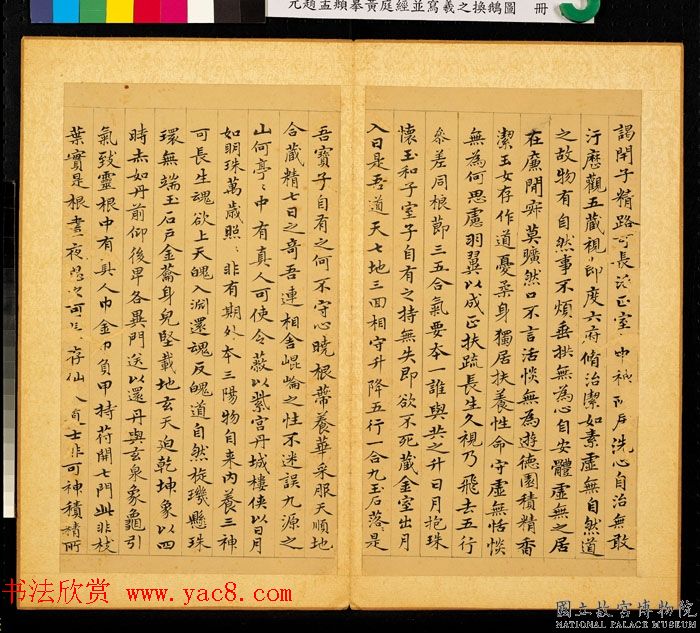 元趙孟頫摹黃庭經並寫羲之換鵝圖　冊
謁閉子精路可長活正室之中神所戶洗心自治無敢
汙歷觀五藏視節度六府脩治潔如素虛無自然道
之故物有自然事不煩垂拱無為心自安體虛無之居
在廉閒寂莫曠然口不言活惔無為遊德園積精香
潔玉女存作道憂柔身獨居扶養性命守虛無恬惔
無為何思慮羽翼以成正扶疏長生久視乃飛去五行
叅差同根莭三五合氣要本一誰與共之升日月抱珠
懷玉和子室子自有之持無失即欲不死藏金室出月
入日是吾道天七地三回相守升降五行一合九玉石落是
吾寶子自有之何不守心曉根蔕養華采服天順地
合藏精七日之奇吾連相舍崐崘之性不迷誤九源之
山何亭〻中有真人可使令蔽以紫宮丹城樓俠以日月
如明珠萬歲照〻非有期外本三陽物自来內養三神
可長生魂欲上天魄入淵還魂反魄道自然旋璣懸珠
環無端玉石戶金蘥身皃堅載地玄天迫乾坤象以四
時赤如丹前仰後卑各異門送以還丹與玄泉象龜引
氣致靈根中有真人巾金巾負甲持苻開七門此非枝
葉實是根晝夜思之可長存仙人道士非可神積精所
书法欣赏 www.yac8.com
國立故宮博物院
NATIONAL PALACE MUSEUM